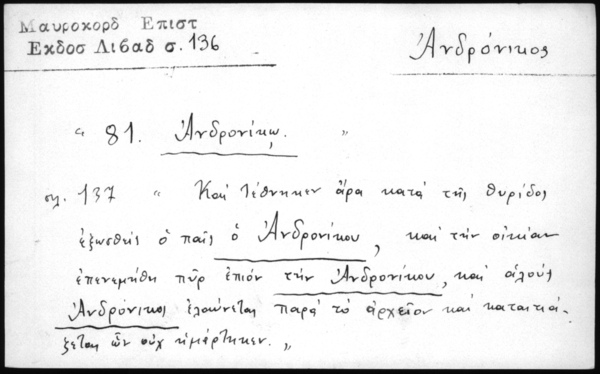 Μαυροκορδ Επιστ
Εκδοσ Λιβαδ σ. 136
Ἀνδρόνικος
" 81. Ἀνδρονίκῳ. "
σλ. 137 " Καὶ τέθνηκεν ἄρα κατὰ τῆς θυρίδος
ἐξωσθεὶς ὁ παῖς ὁ Ἀνδρονίκου, καὶ τὴν οἰκίαν
ἐπενεμήθη πῦρ ἐπιὸν τὴν Ἀνδρονίκου, καὶ ἁλοὺς
Ἀνδρόνικος ἐλαύνεται παρὰ τὸ ἀρχεῖον καὶ καταιτιά-
ζεται ὧν οὐχ ἡμάρτηκεν. "